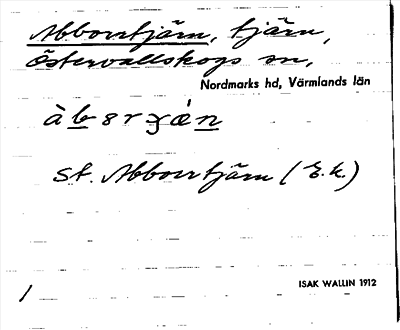 Abborrtjärn, tjärn,
Östervallskogs sn,
Nordmarks hd, Värmlands län
St. Abborrtjärn (E.k.)
ISAK WALLIN 1912
1